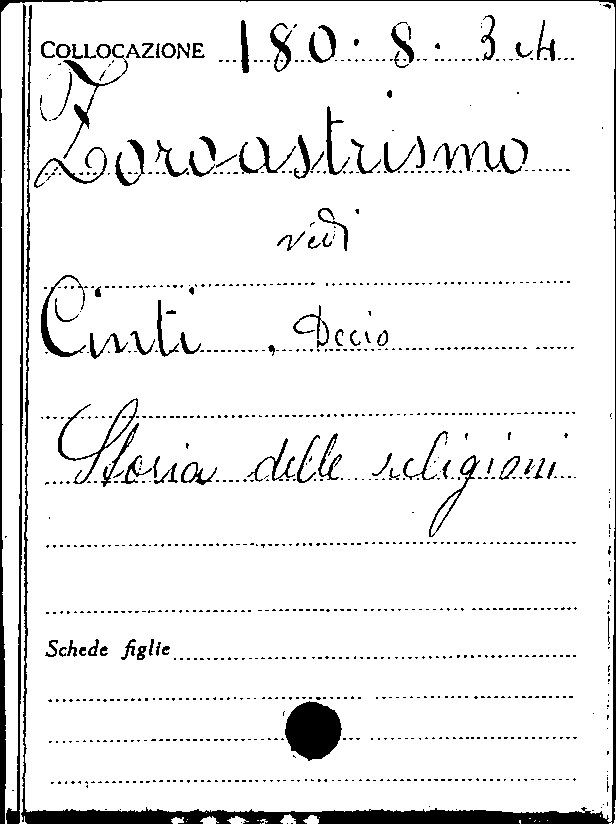 COLLOCAZIONE 180. 8. 3 e 4
Zoroastrismo
vedi
Cinti, Decio
Storia delle religioni
Schede figlie